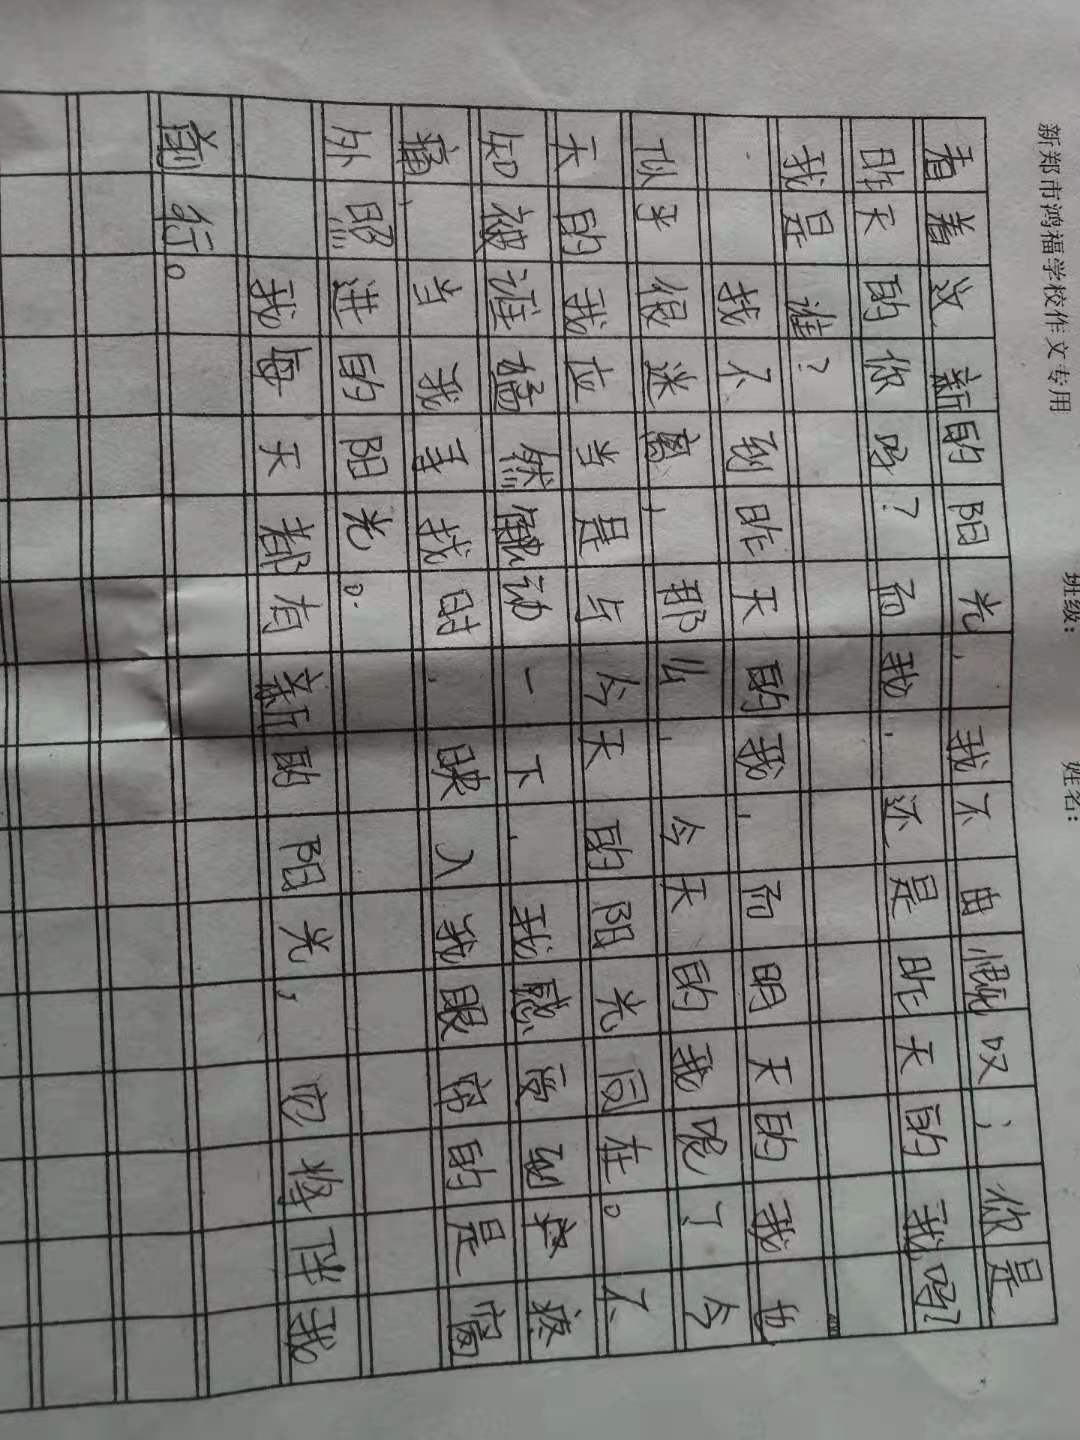 新郑市鸿福学校作文专用 班级： 姓名：
看着这新的阳光，我不由慨叹；你是
昨天的你吗？而我，还是昨天的我吗？
我是谁？
我不到昨天的我，而明天的我也
似乎很迷离，那么，今天的我呢了今
天的我应当是与今天的阳光同在。不
知被谁猛然触动一下，我感受到学疼
痛，当我寻找时，映入我眼帘的是窗
外照进的阳光。
我每天都有新的阳光，它将伴我
前行。